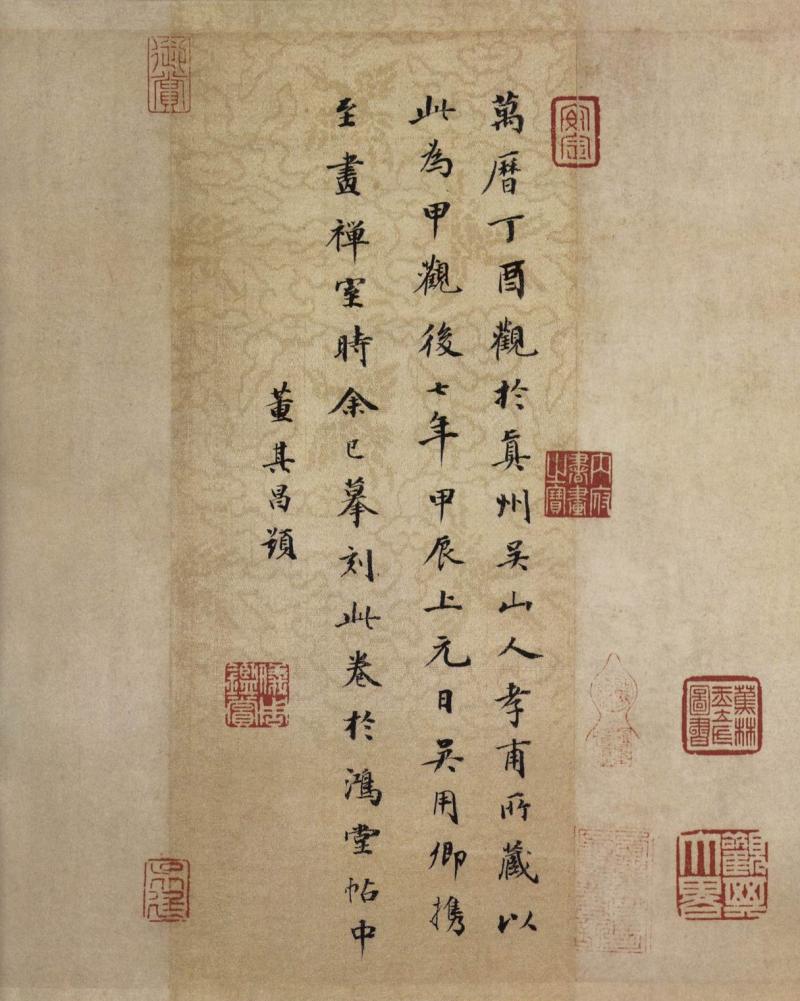 萬曆丁酉觀於真州吳山人孝甫所藏以
此為甲觀後七年甲辰上元日吳用卿攜
至畫禪室時余已摹刻此卷於鴻堂帖中
董其昌題
安定
內府書畫之寶
蕉林玉立氏圖書
觀其大略
御賞